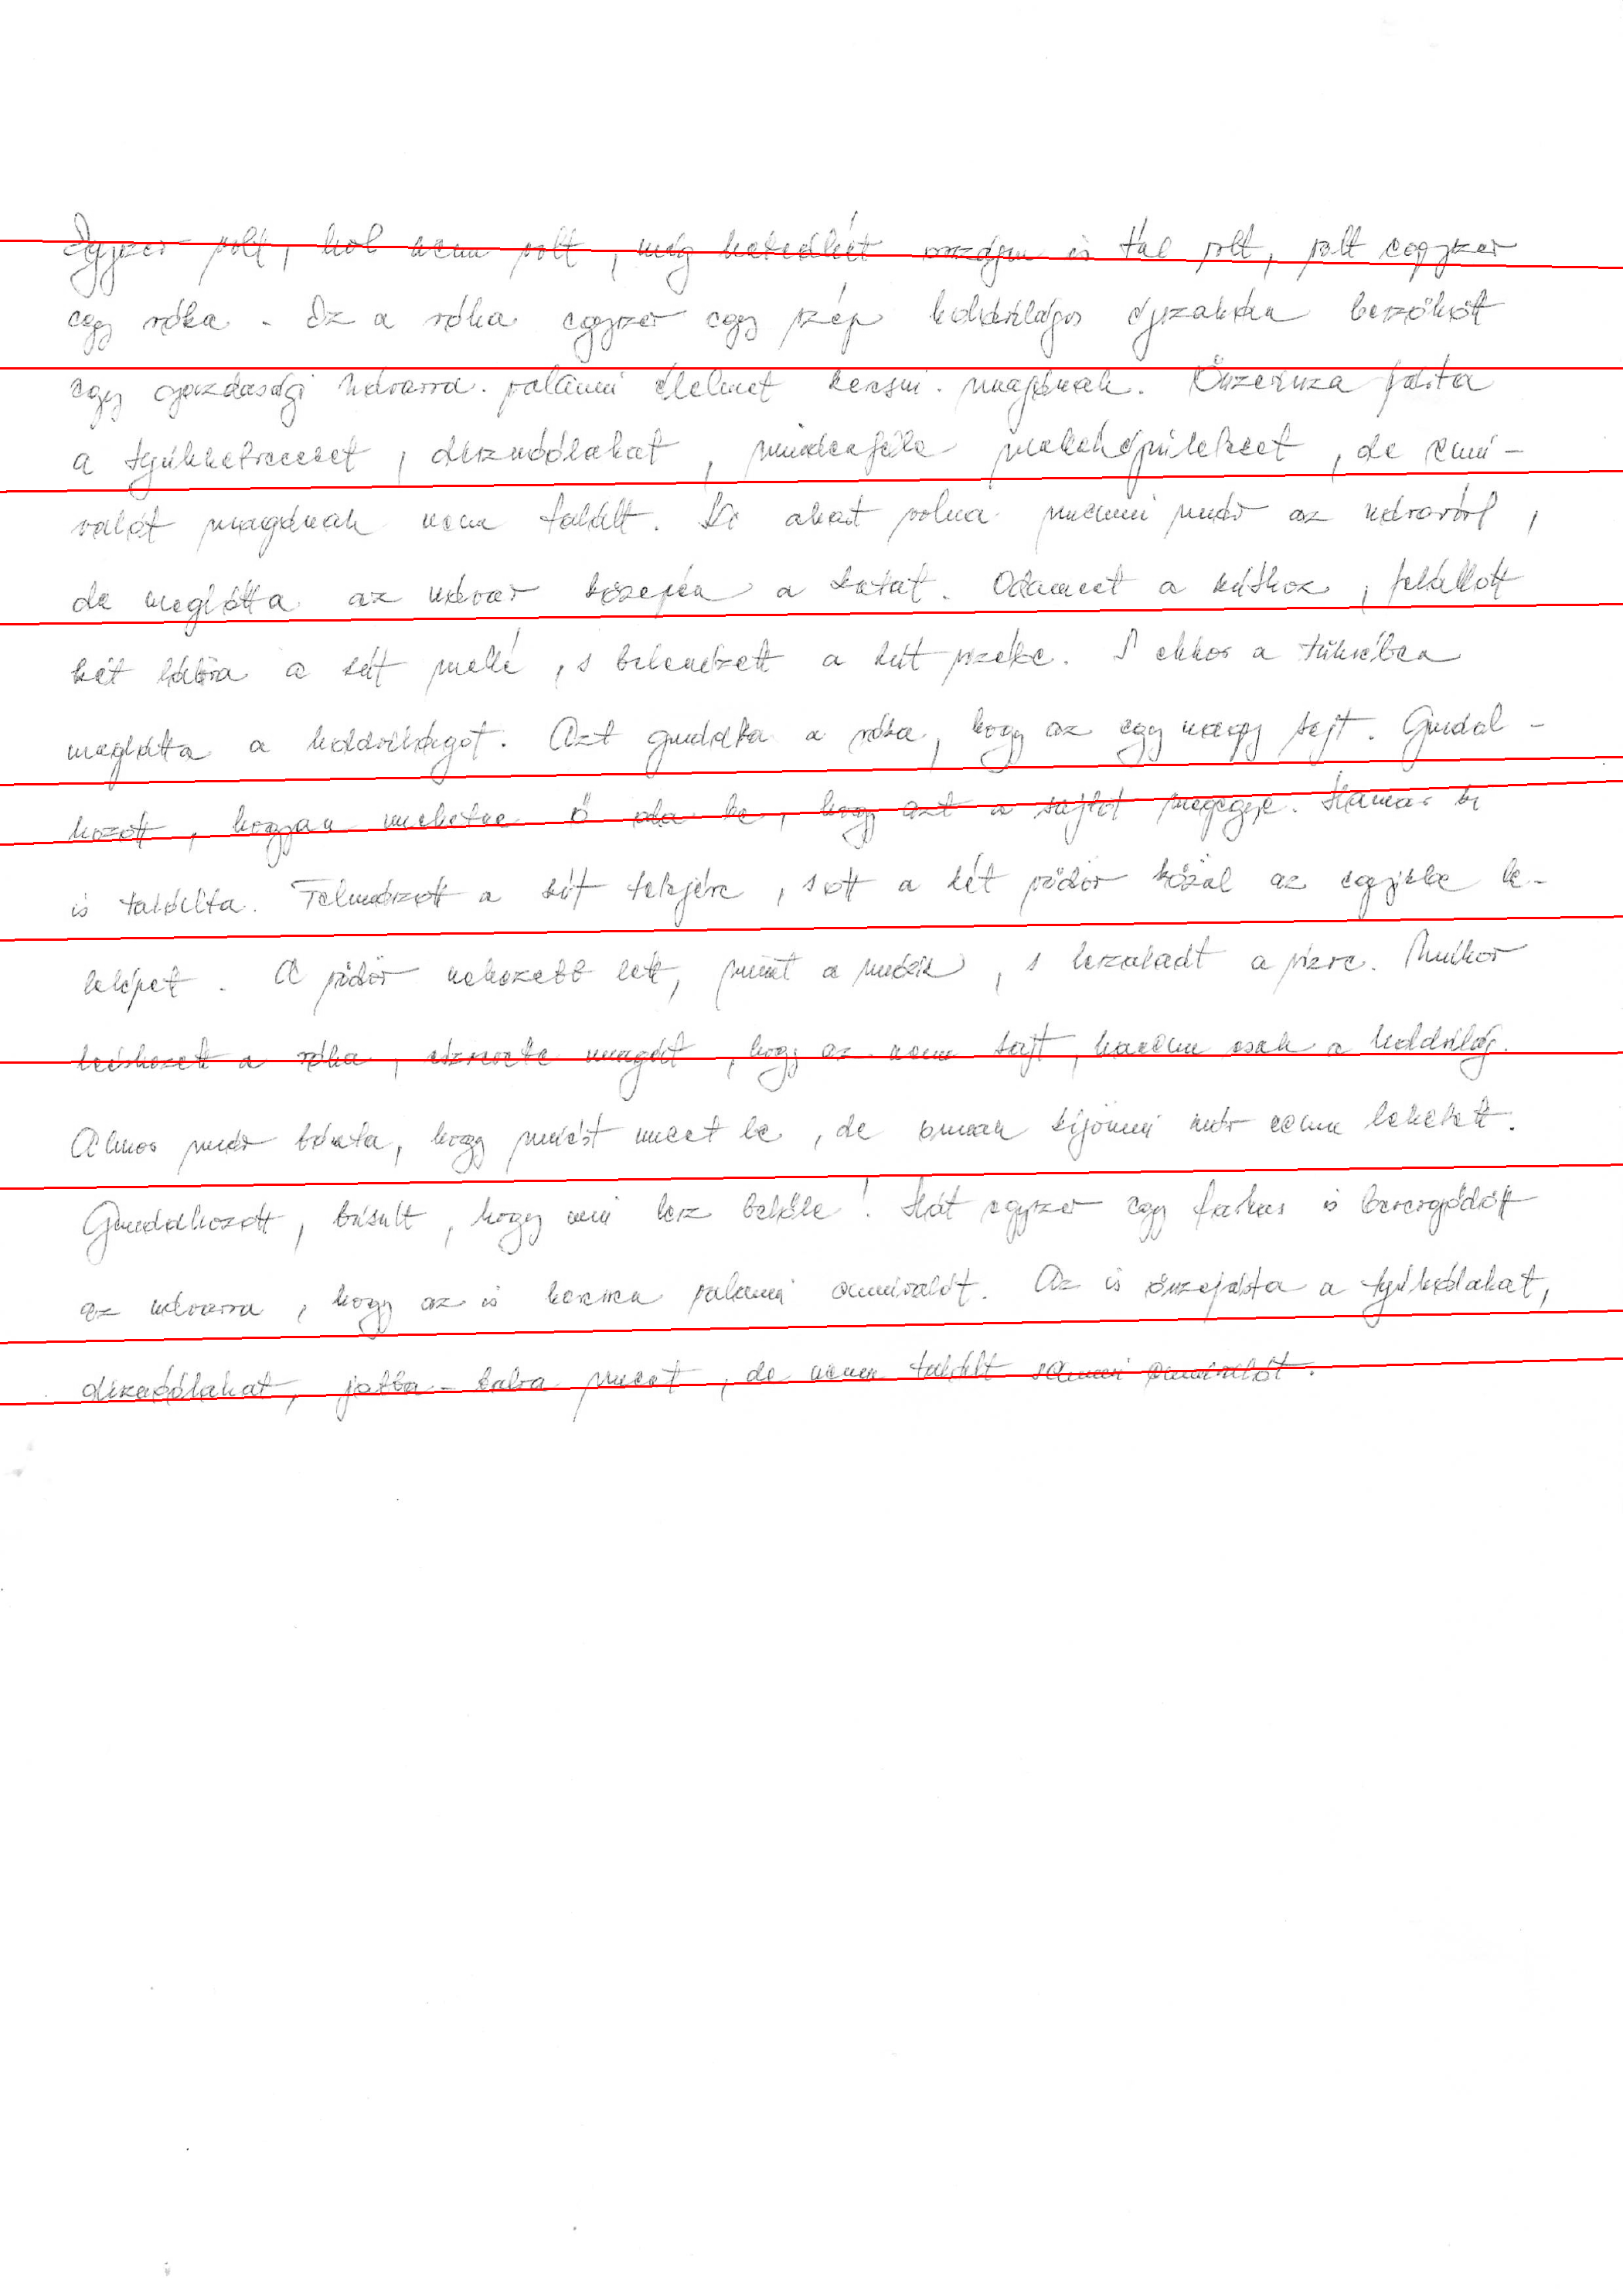 Egyszer volt, hol nem volt, még hetedhét országon is túl volt, volt egyszer
egy róka. Ez a róka egyszer egy szép holdvilágos éjszakán beszökött
egy gazdasági udvarra valami élelmet keresni magának. Össze-vissza járta
a tyúkketreceket, disznóólakat, mindenféle melléképületeket, de enni-
valót magának nem talált. Ki akart volna menni már az udvarból,
de meglátta az udvar közepén a kutat. Odament a kúthoz, felállott
két lábra a kút mellé, s belenézett a kút vizébe. S ekkor a tükrében
meglátta a holdvilágot. Azt gondolta a róka, hogy az egy nagy sajt. Gondol-
kozott, hogyan mehetne ő oda be, hogy azt a sajtot megegye. Hamar ki
is találta. Felmászott a kút tetejére, s ott a két vödör közül az egyikbe be-
lelépet. A vödör nehezebb lett, mint a másik, s leszaladt a vízre. Mikor
leérkezett a róka, észrevette magát, hogy az nem sajt, hanem csak a holdvilág.
Akkor már bánta, hogy miért ment le, de onnan kijönni már nem lehetett.
Gondolkozott, búsult, hogy mi lesz belőle! Hát egyszer egy farkas is bevergődött
az udvarra, hogy az is keressen valami ennivalót. Az is összejárta a tyúkólakat,
disznóólakat, jobbra-balra ment, de nem talált semmi ennivalót.